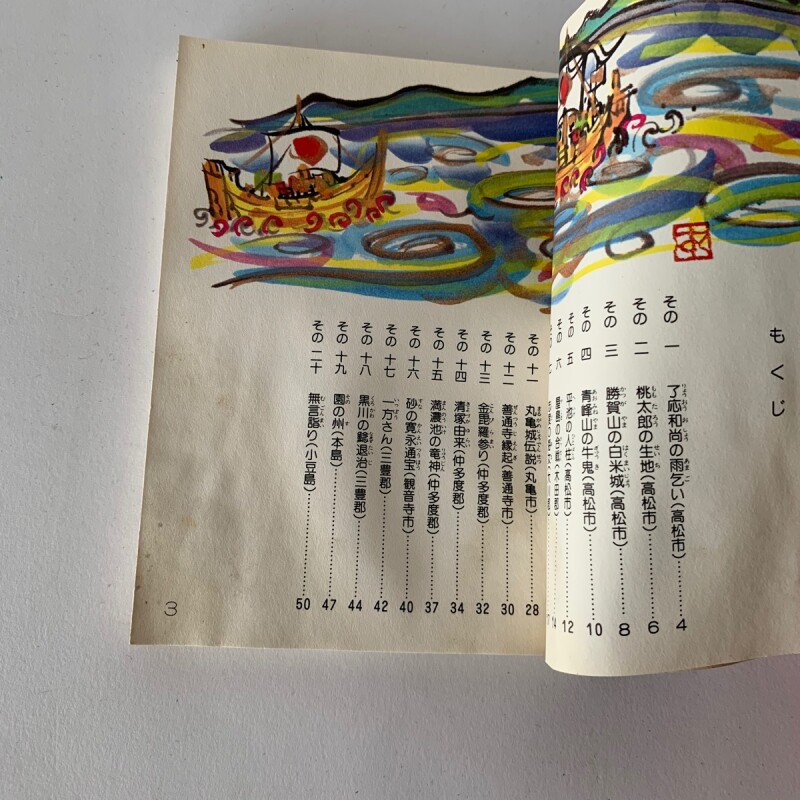 もくじ
その一 了応和尚の雨乞い(高松市)……4
その二 桃太郎の生地(高松市)……6
その三 勝賀山の白米城(高松市)……8
その四 青峰山の牛鬼(高松市)……10
その五 平池の人柱(高松市)……12
その六 屋島の合戦(木田郡)……14
その七
その十一 丸亀城伝説(丸亀市)……28
その十二 善通寺縁起(善通寺市)……30
その十三 金毘羅参り(仲多度郡)……32
その十四 清塚由来(仲多度郡)……34
その十五 満濃池の竜神(仲多度郡)……37
その十六 砂の寛永通宝(観音寺市)……40
その十七 一方さん(三豊郡)……42
その十八 黒川の鯰退治(三豊郡)……44
その十九 園の州(本島)……47
その二十 無言詣り(小豆島)……50
3